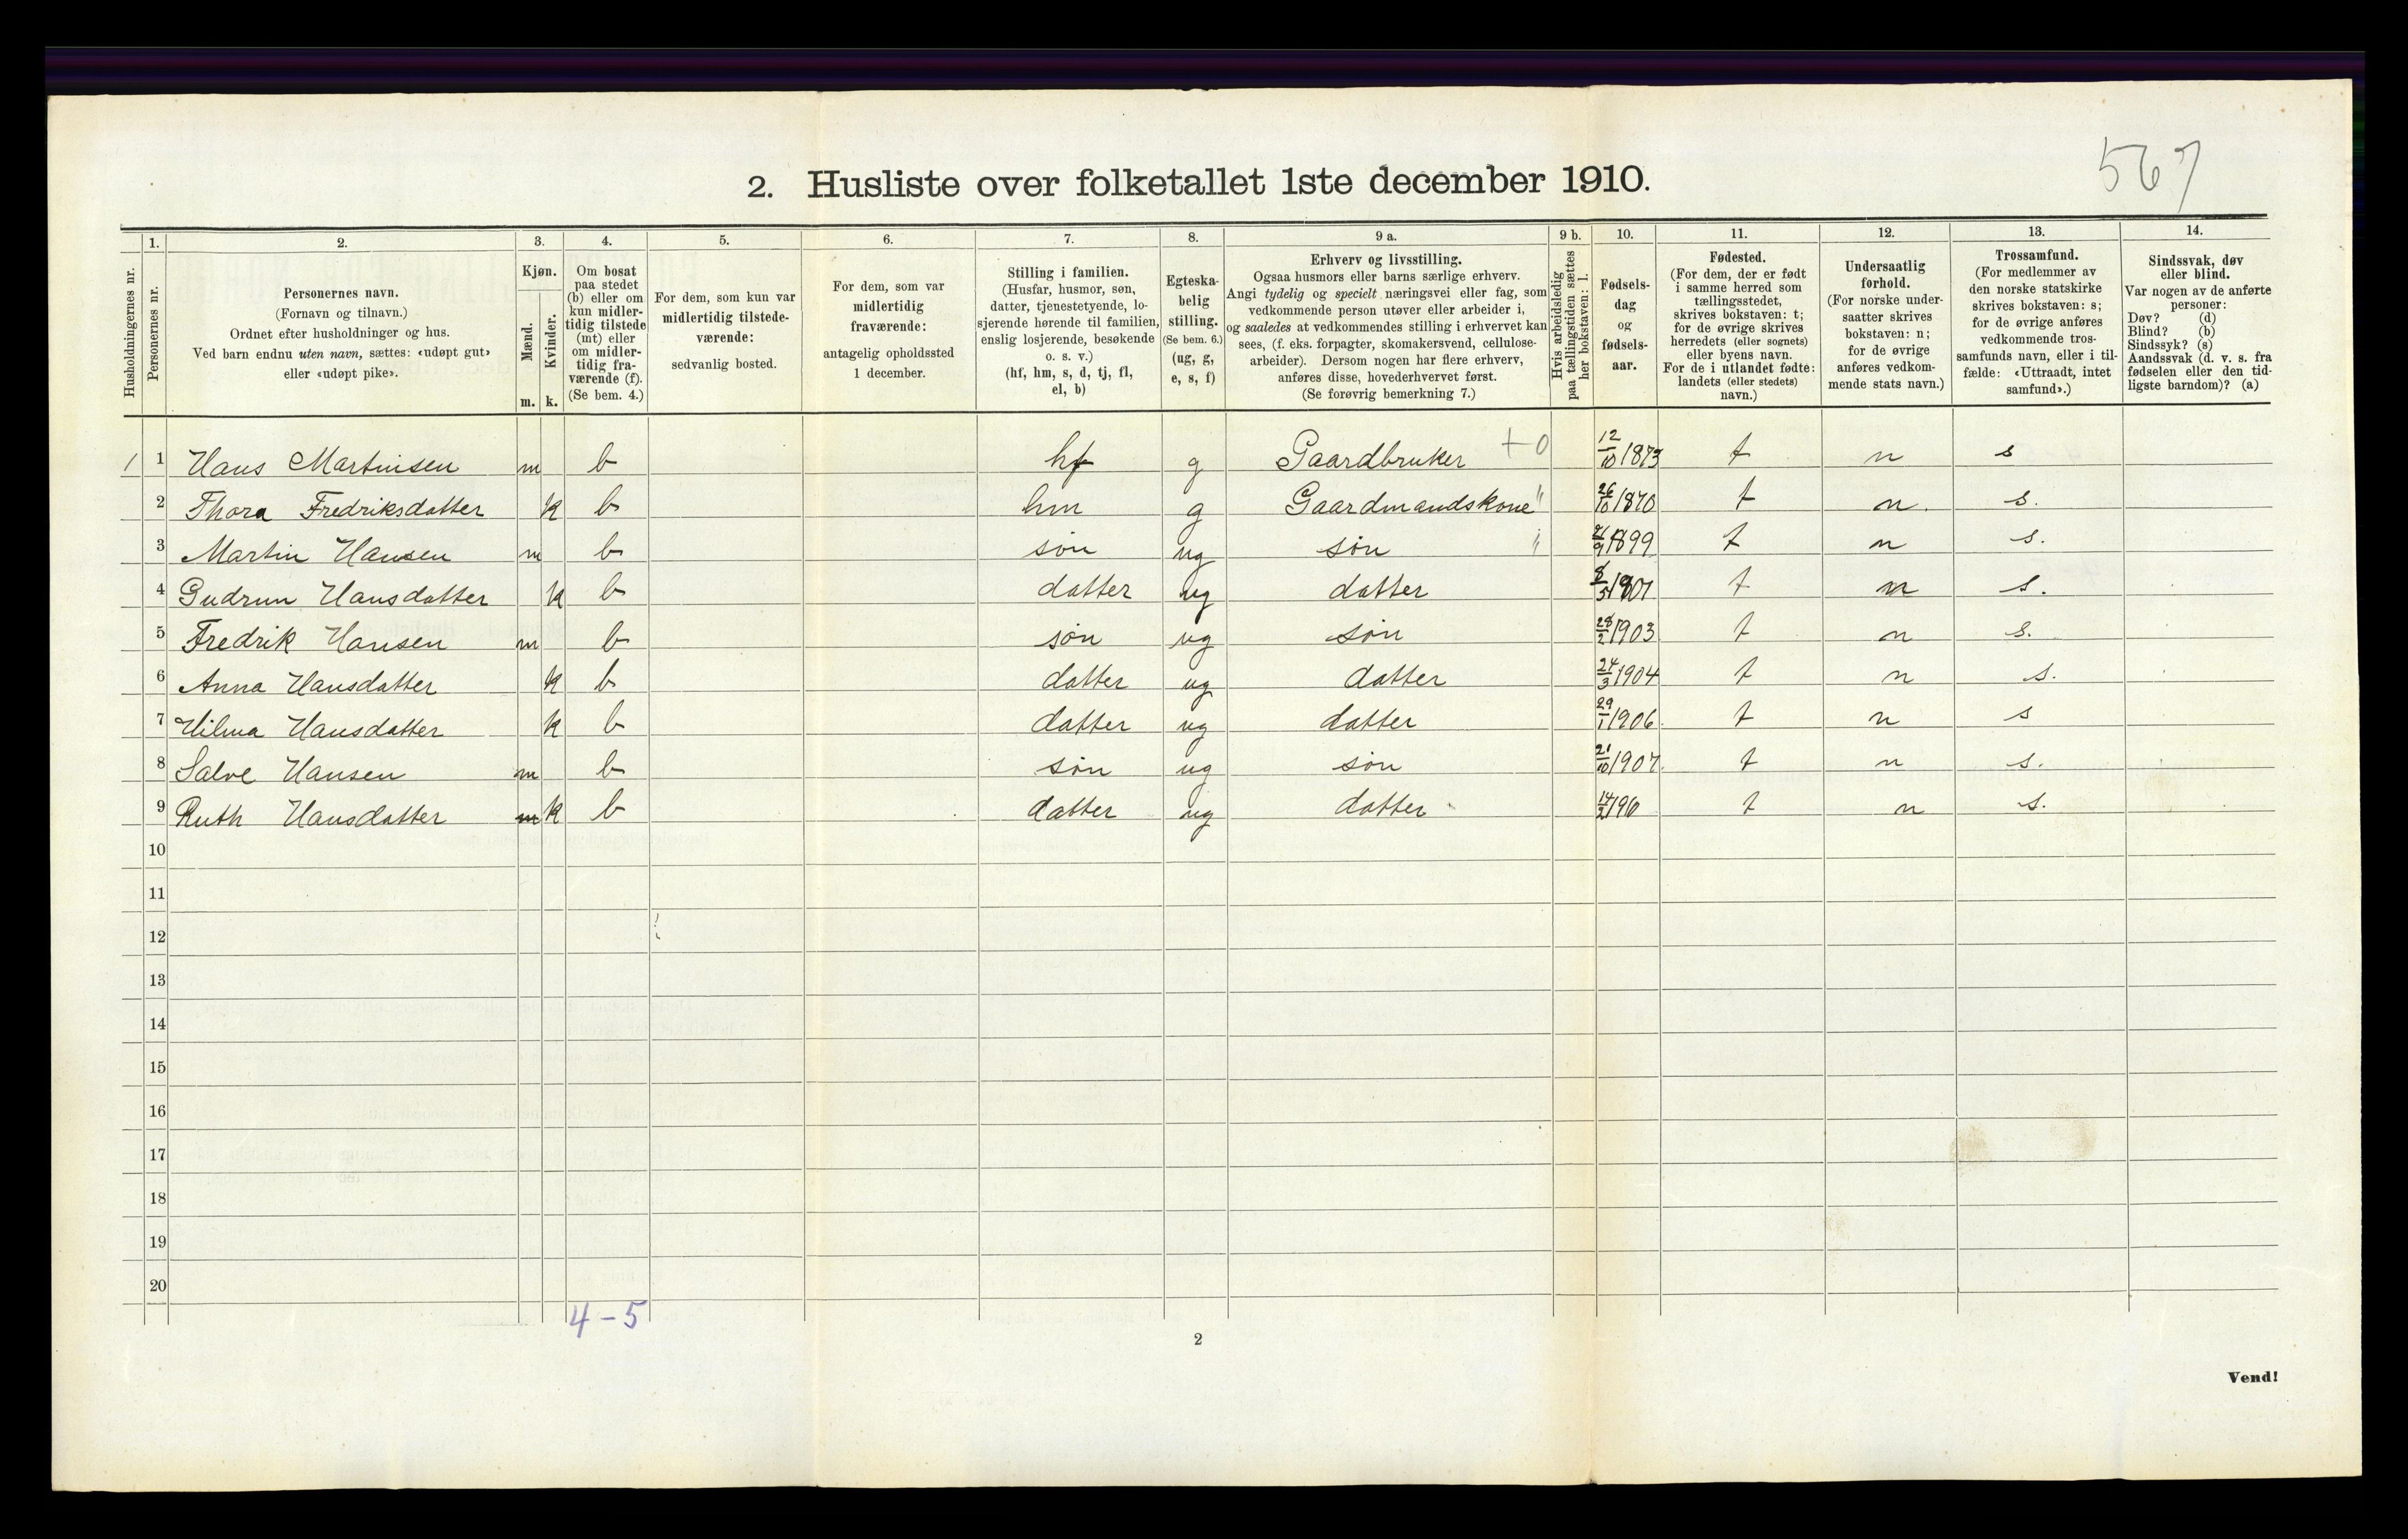 567
2. Husliste over folketallet 1ste december 1910.
Husholdningernes nr.
1.
Personernes nr.
2.
Personernes navn.
(Fornavn og tilnavn.)
Ordnet efter husholdninger og hus.
Ved barn endnu uten navn, sættes: «udøpt gut»
eller «udøpt pike».
3.
Kjøn.
Mænd.
Kvinder.
m. k.
4.
Om bosat
paa stedet
(b) eller om
kun midler-
tidig tilstede
(mt) eller
om midler-
tidig fra-
værende (f).
(Se bem. 4.)
5.
For dem, som kun var
midlertidig tilstede-
værende:
sedvanlig bosted.
6.
For dem, som var
midlertidig
fraværende:
antagelig opholdssted
1 december.
7.
Stilling i familien.
(Husfar, husmor, søn,
datter, tjenestetyende, lo-
sjerende hørende til familien,
enslig losjerende, besøkende
o. s. v.)
(hf, hm, s, d, tj, fl,
el, b)
8.
Egteska-
belig
stilling.
(Se bem. 6.)
(ug, g,
e, s, f)
9 a.
Erhverv og livsstilling.
Ogsaa husmors eller barns særlige erhverv.
Angi tydelig og specielt næringsvei eller fag, som
vedkommende person utøver eller arbeider i,
og saaledes at vedkommendes stilling i erhvervet kan
sees, (f. eks. forpagter, skomakersvend, cellulose-
arbeider). Dersom nogen har flere erhverv,
anføres disse, hovederhvervet først.
(Se forøvrig bemerkning 7.)
9 b.
Hvis arbeidsledig
paa tællingstiden sættes
her bokstaven: l.
10.
Fødsels-
dag
og
fødsels-
aar.
11.
Fødested.
(For dem, der er født
i samme herred som
tællingsstedet,
skrives bokstaven: t;
for de øvrige skrives
herredets (eller sognets)
eller byens navn.
For de i utlandet fødte:
landets (eller stedets)
navn.)
12.
Undersaatlig
forhold.
(For norske under-
saatter skrives
bokstaven: n;
for de øvrige
anføres vedkom-
mende stats navn.)
13.
Trossamfund.
(For medlemmer av
den norske statskirke
skrives bokstaven: s;
for de øvrige anføres
vedkommende tros-
samfunds navn, eller i til-
fælde: «Uttraadt, intet
samfund».)
14.
Sindssvak, døv
eller blind.
Var nogen av de anførte
personer:
Døv? (d)
Blind? (b)
Sindssyk? (s)
Aandssvak (d. v. s. fra
fødselen eller den tid-
ligste barndom)? (a)
1 1 Hans Martinisen m b hf g Gaardbruker +0 12/10 1873 t n s
2 Thora Fredriksdatter k b hm g Gaardmandskone " 26/10 1870 t n. s.
3 Martin Hansen m b søn ug søn " /9 1899 t n s.
4 Gudrun Hansdatter k b datter ug datter 8/5 1901 t n s.
5 Fredrik Hansen m b søn ug søn 28/2 1903 t n s.
6 Anna Hansdatter k b datter ug datter 24/3 1904 t n s.
7 Hilma Hansdatter k b datter ug datter 29/1 1906. t n s
8 Salve Hansen m b søn ug søn 21/10 1907. t n s.
9 Ruth Hansdatter m k b datter ug datter 14/2 1910 t n s.
10
11
12
13
14
15
16
17
18
19
20
4-5
2
Vend!